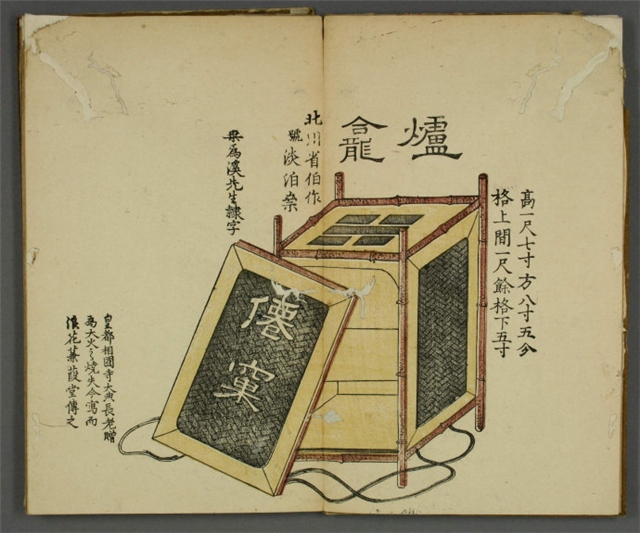 爐龕
高一尺七寸方八寸五分
格上間一尺餘格下五寸
北川省伯作
號淡泊
桑為溪先生隸字
僊窠
皇都相國寺大典長老贈
為大火之燒失今寫而
浪花蒹葭堂傳之